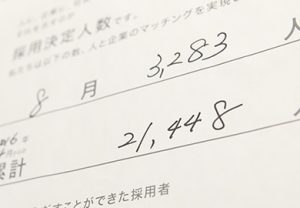 採用決定人数です。
私たちは以下の数、人と企業のマッチングを実現
8月 3,283 人
6年
累計 21,448
すことができた採用者